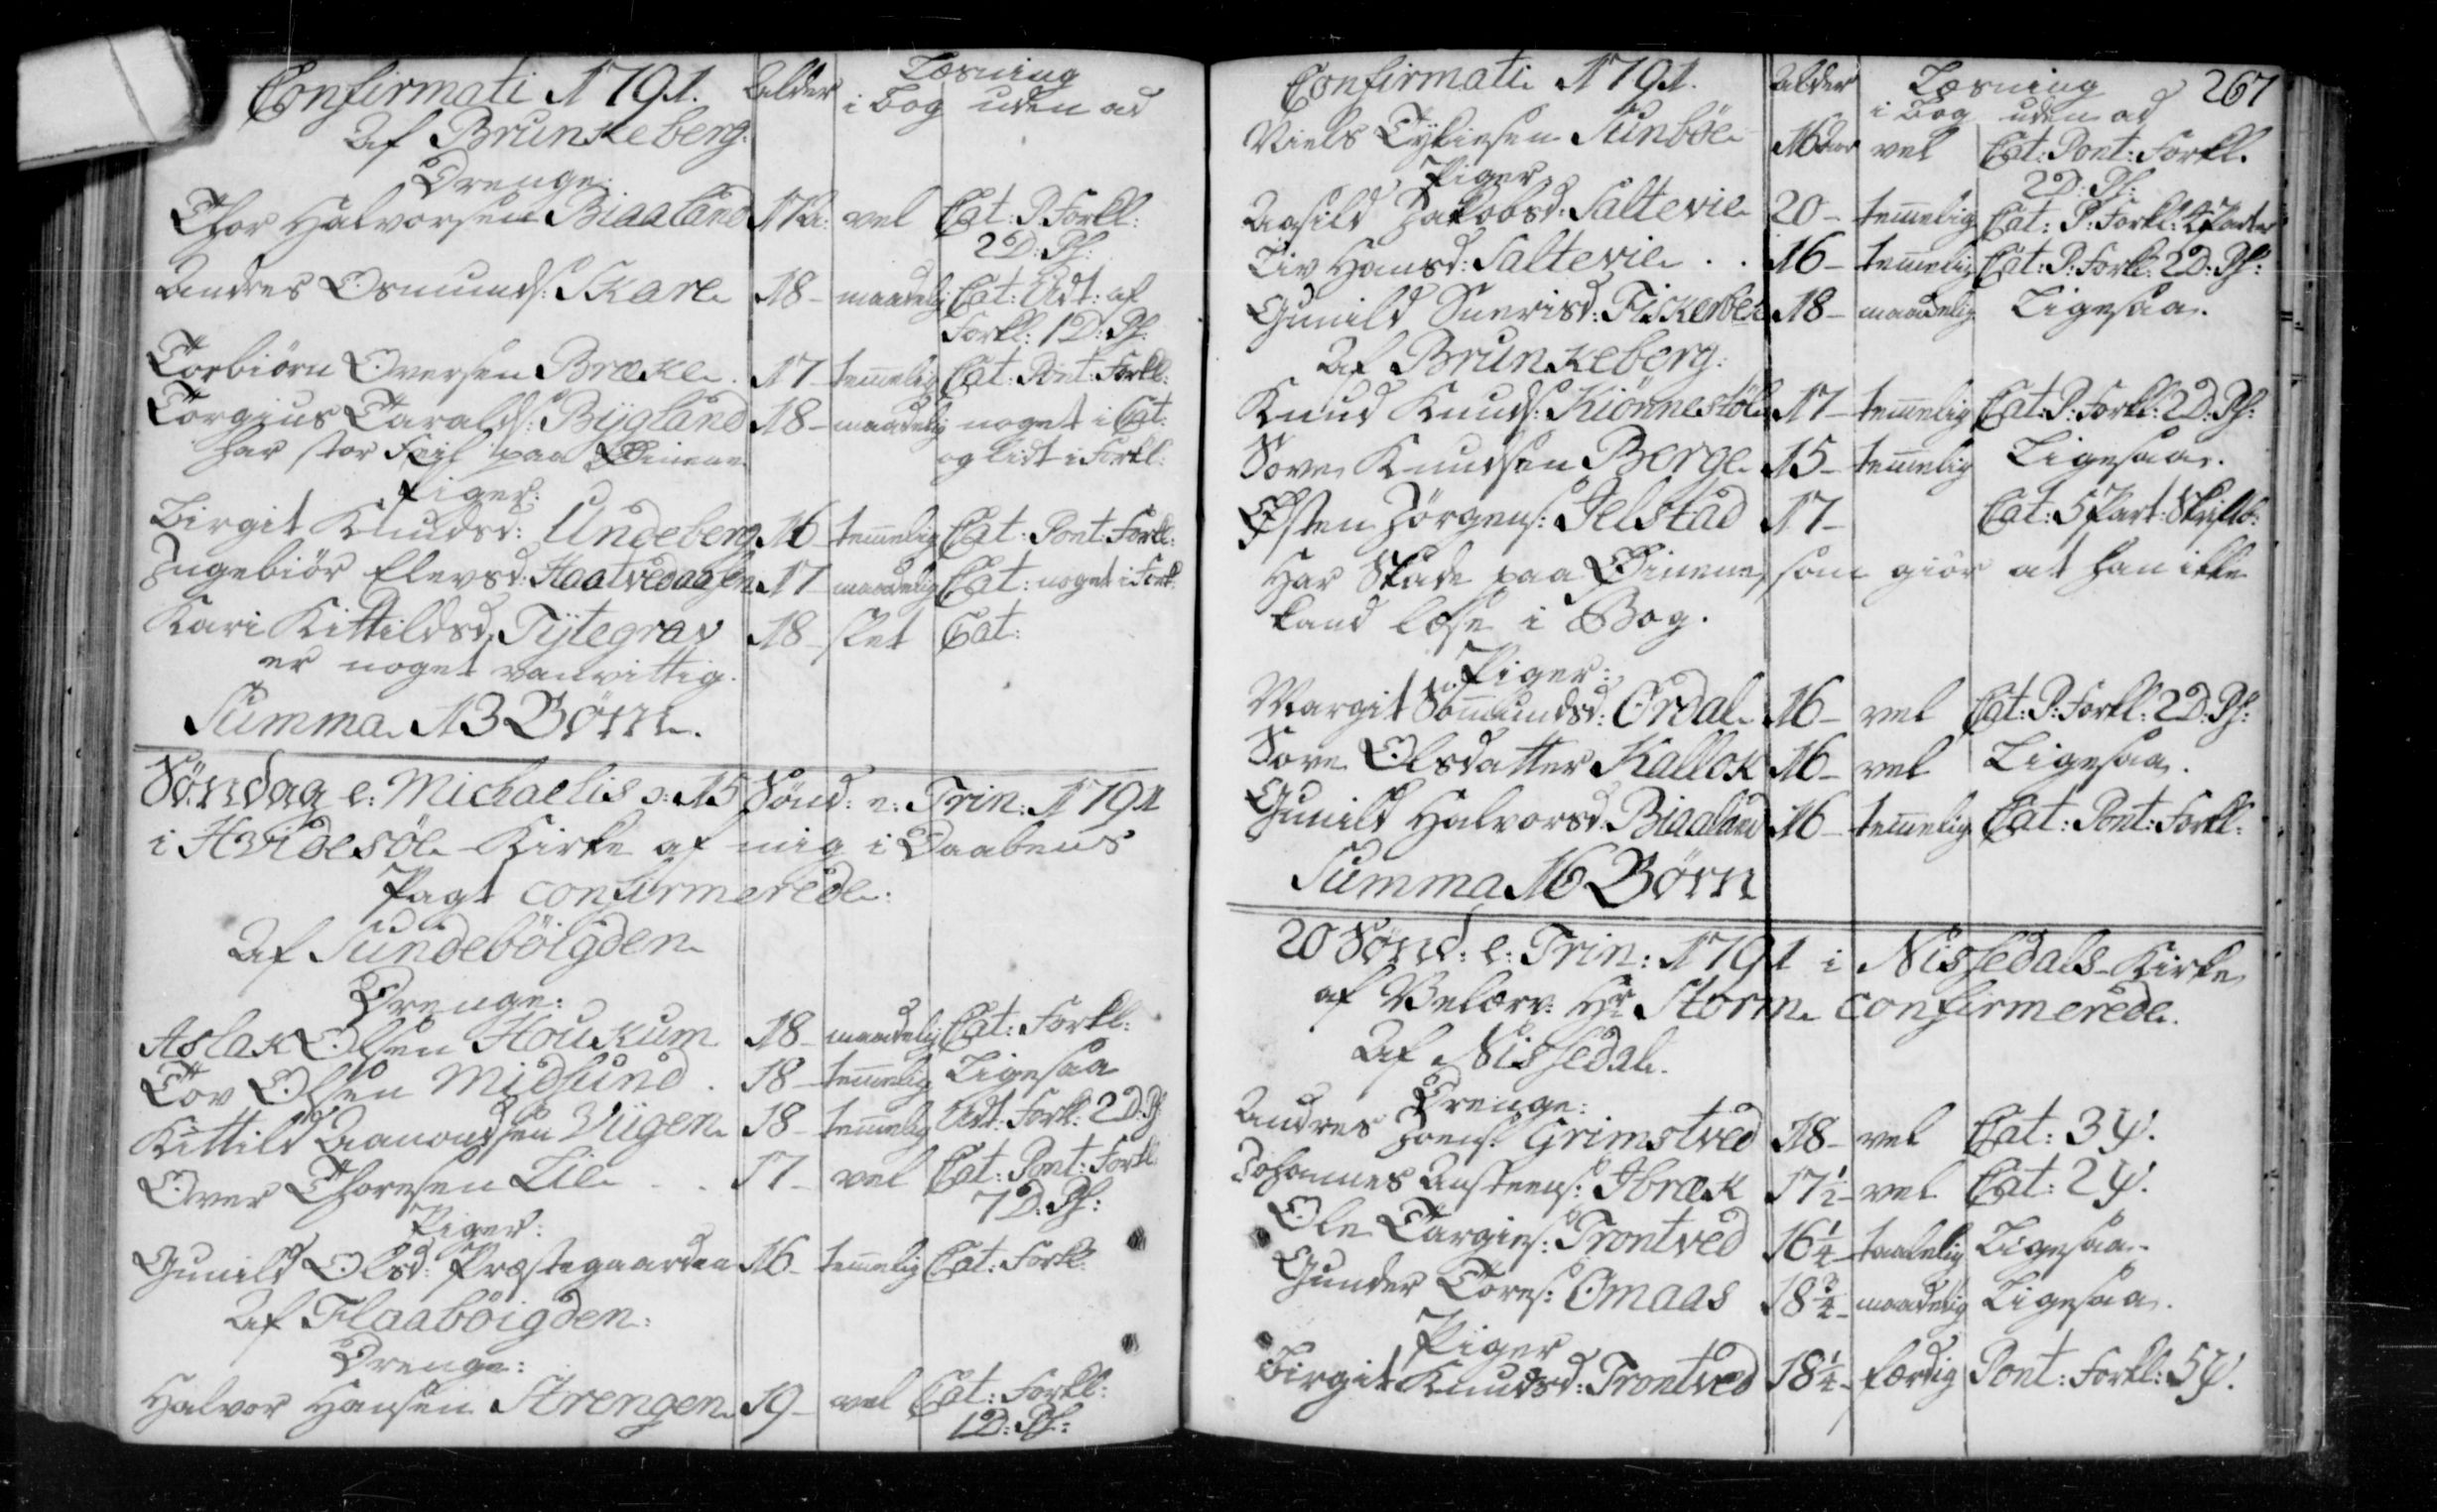 Confirmati 1791. Alder Læsning
i Bog uden ad
Af Brunkeberg.
Drenge:
Thor Halvorsen Biaaland 17 A: vel Cat: P. Forkl:
2 D: Ps:
Andres Osmunds: Skare 18 - maadelig Cat: Udt: af
Forkl: 1 D: Ps:
Torbiörn Oversen Bræke 17 - temmelig Cat: Pont: Forkl:
Torgius Taralds: Bÿgland 18 - maadelig noget i Cat:
har stor Feil paa Öinene og lidt i Forkl:
Piger:
Birgit Knudsd: Undeberg 16 - temmelig Cat: Pont: Forkl:
Ingebiör Elevsd: Haatvedaasen 17 maadelig Cat: noget i Forkl:
Kari Kittildsd: Tÿtegrav 18 - slet Cat:
er noget vanvittig.
Summa 13 Börn.
Söndag e: Michaelis o: 15 Sönd: e: Trin: 1791
i Hvidesöe Kirke af mig i Daabens
Pagt confirmerede:
Af Sundebölgden
Drenge:
Aslak Olsen Houkum 18 - maadelig Cat: Forkl:
Tov Olsen Midsund . 18 - temmelig Ligesaa
Kittild Aamondsen Viigen 18 - temmelig Udt: Forkl: 2 D: Ps:
Over Thoresen Lie . . 17 - vel Cat: Pont: Forkl:
7 D: Ps:
Piger:
Gunild Olsd: Præstegaarden 16 - temmelig Cat: Forkl:
Af Flaaböigden:
Drenge:
Halvor Hansen Strengen 19 - vel Cat: Forkl:
1 D: Ps:
Confirmati 1791. Alder Læsning 267
i Bog uden ad
Niels Sunböe 16 Aar vel Cat: Pont: Forkl.
2 D: Ps:
Piger
Aasild Jakobsd: Saltevie 20 - temmelig Cat: P: Forkl: 4 Parter
Liv Hansd: Saltevie . . 16 - temmelig Cat: P: Forkl: 2 D: Ps:
Gunild Sverisd: Fiskerbek 18 - maadelig Ligesaa.
Af Brunkeberg:
Knud Knuds: Kiönnestöl 17 - temmelig Cat: P: Forkl: 2 D: Ps:
Sove Knudsen Berge 15 - temmelig Ligesaa.
Östen Jörgens: Jelstad 17 - Cat: 5 Part:
Har Skade paa Öinene, som giör at han ikke
kand læse i Bog.
Piger:
Margit Sommundsd: Ordal 16 - vel Cat: P: Forkl: 2 D: Ps:
Sove Olsdatter Kallok 16 - vel Ligesaa.
Gunild Halvorsd: Biaaland 16 - temmelig Cat: Pont: Forkl:
Summa 16 Börn
20 Sönd: e: Trin: 1791 i Nissedals Kirke
af Velærv: Hr Storm confirmerede.
Af Nissedal.
Drenge:
Andres Joens: Grimstved 18 - vel Cat: 3 ψ.
Johannes Austeens: Ibræk 17 1/2 - vel Cat: 2 ψ.
Ole Targies: Trontved 16 1/4 - taalelig Ligesaa.
Gunder Tores: Omaas 18 3/4 - maadelig Ligesaa.
Piger
Birgit Knudsd: Trontved 18 1/4 - færdig Pont: Forkl: 5 ψ.